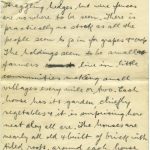 straggling hedges but wire fences
are nowhere to be seen. There is
practically no stock as all the
people seem to go in for grapes &
The holdings seem to be small &
farmers live in little
communities making small
villages every mile or two. Each
house has its garden, chiefly
vegetables & it is surprising how
neat they all are. The houses are
nearly all old & built of brick with
tiled roofs, around each house